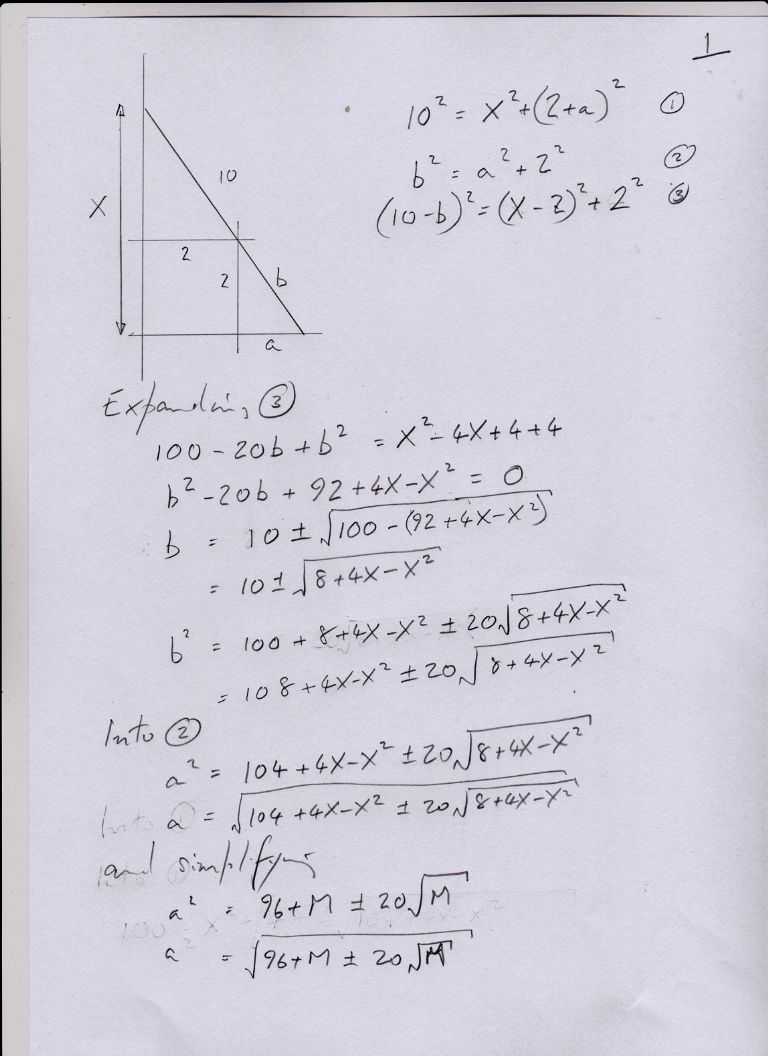 1
10² = X² + (2+a)² ①
b² = a² + 2² ②
(10-b)² = (X-2)² + 2² ③
X
10
2
2
b
a
Expanding ③
100 - 20b + b² = X² - 4X + 4 + 4
b² - 20b + 92 + 4X - X² = 0
b = 10 ± √(100 - (92 + 4X - X²))
= 10 ± √(8 + 4X - X²)
b² = 100 + 8 + 4X - X² ± 20√(8 + 4X - X²)
= 108 + 4X - X² ± 20√(8 + 4X - X²)
Into ②
a² = 104 + 4X - X² ± 20√(8 + 4X - X²)
a = √(104 + 4X - X² ± 20√(8 + 4X - X²))
and simplifying
a² = 96 + M ± 20√M
a = √(96 + M ± 20√M)